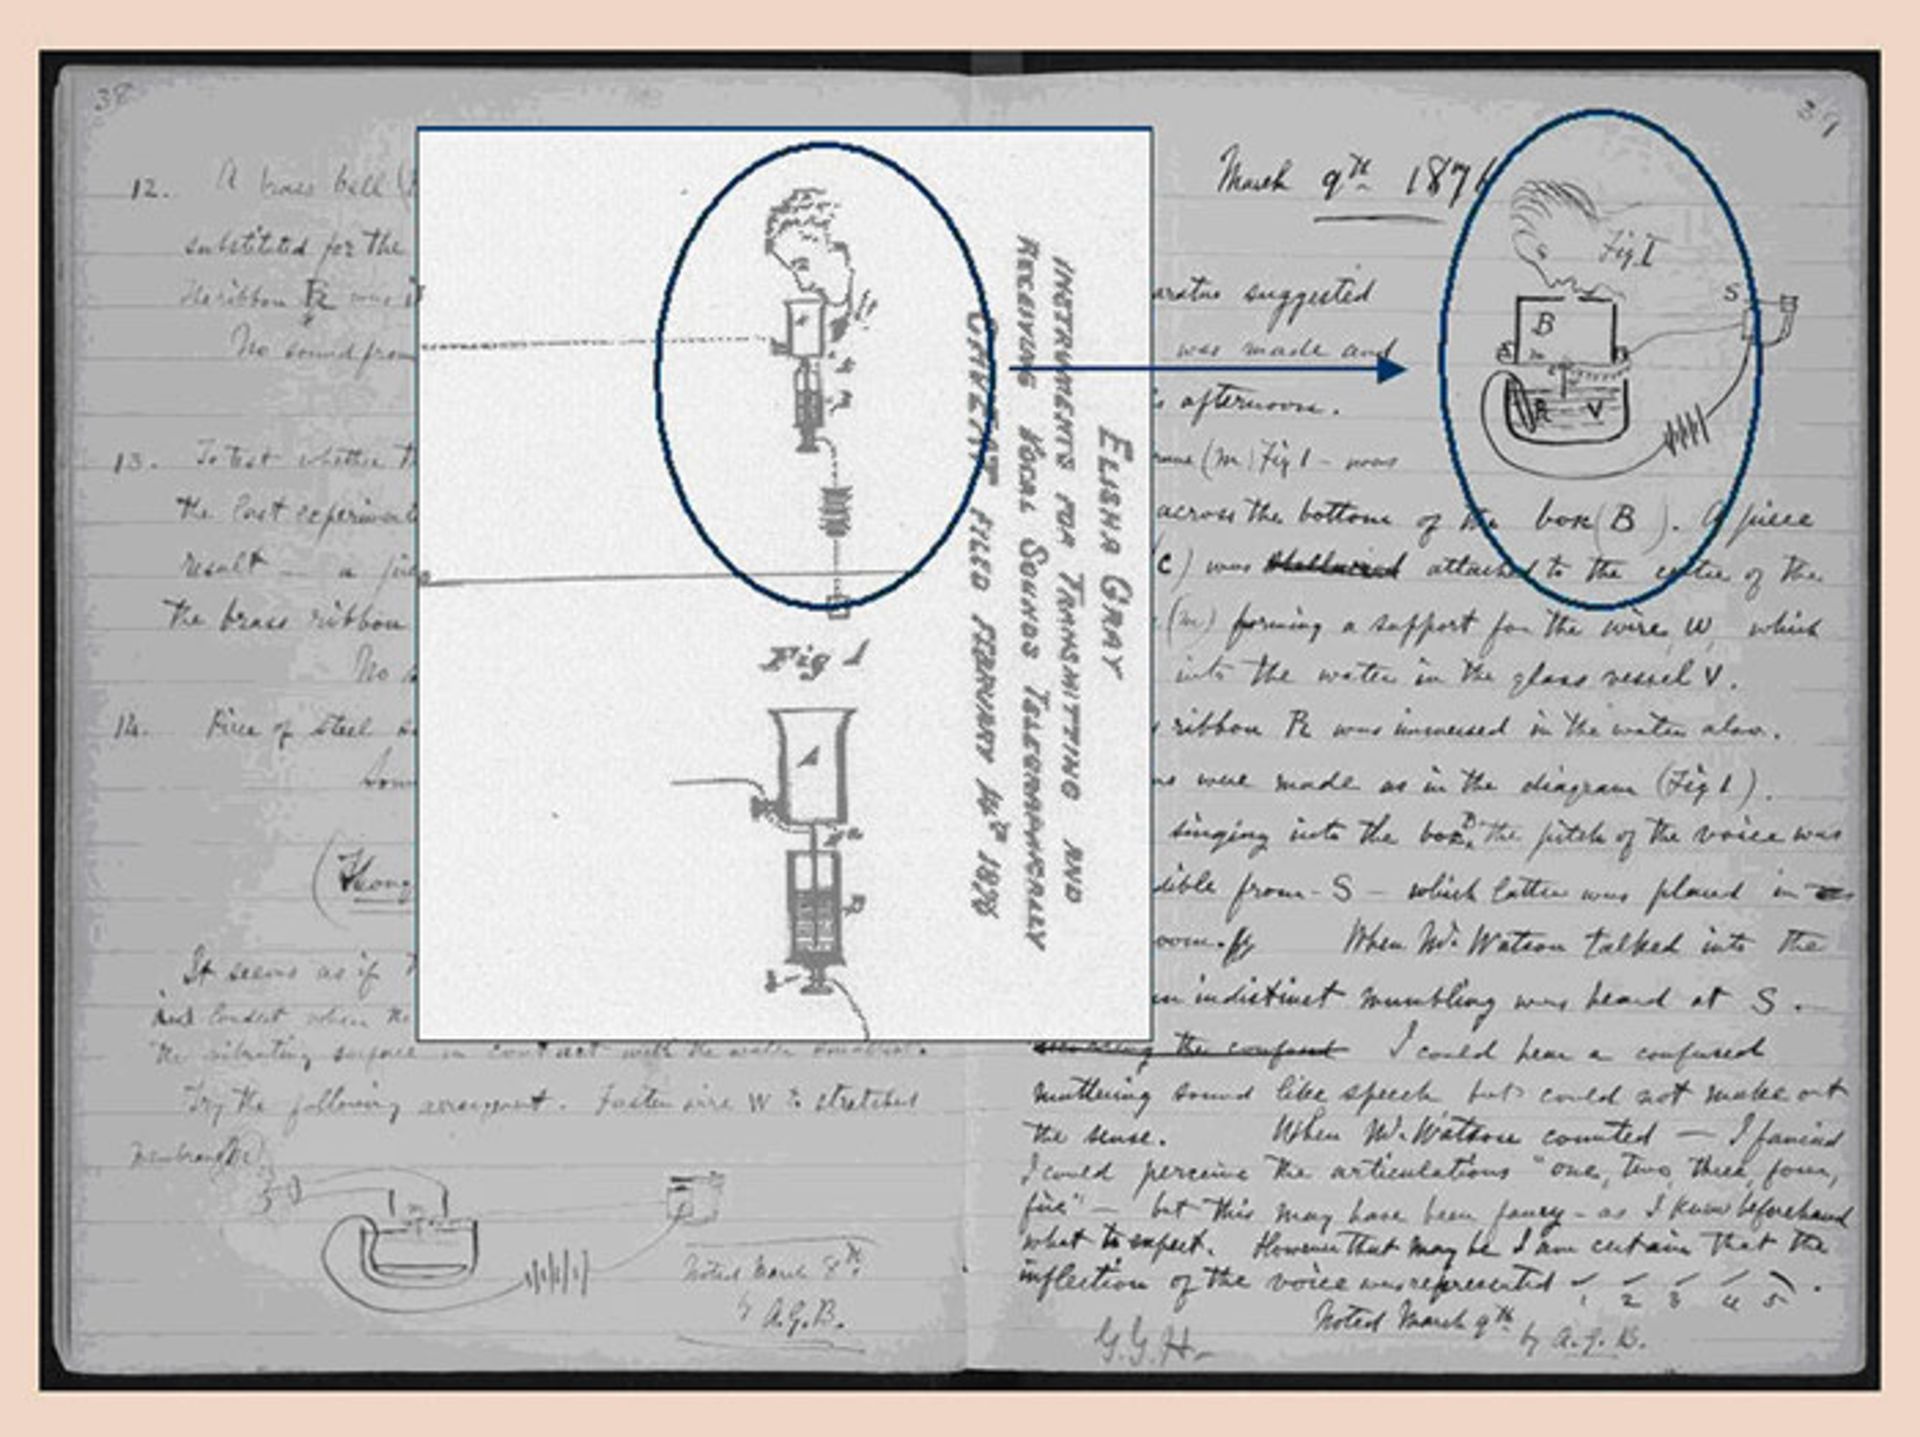 38
12. A brass bell
substituted for the
the ribbon R was
No sound from
13. To test whether
the last experiment
result — a
the brass ribbon
No
14. Piece of steel
It seems as if
loudest when the
the vibrating surface in contact with the water
Try the following arrangement. Fasten wire W to stretched
membrane
Noted March 8th
by A.G.B.
ELISHA GRAY
INSTRUMENTS FOR TRANSMITTING AND
RECEIVING VOCAL SOUNDS TELEGRAPHICALLY
CAVEAT FILED FEBRUARY 14th 1876
Fig 1
A
39
March 9th 1876
Fig. 1
S
B
m
R
V
suggested
was made and
afternoon.
(m) Fig 1 - was
across the bottom of the box (B). A piece
(C) was attached to the centre of the
(m) forming a support for the wire, W, which
into the water in the glass vessel V.
ribbon R was immersed in the water also.
were made as in the diagram (Fig 1).
singing into the box, the pitch of the voice was
from S — which latter was placed in
When Mr. Watson talked into the
an indistinct mumbling was heard at S.
the confused I could hear a confused
muttering sound like speech but could not make out
the sense. When Mr. Watson counted — I fancied
I could perceive the articulations "one, two, three, four,
five" — but this may have been fancy - as I knew beforehand
what to expect. However that may be I am certain that the
inflection of the voice was represented 1 2 3 4 5.
Noted March 9th
by A.G.B.
G.G.H.